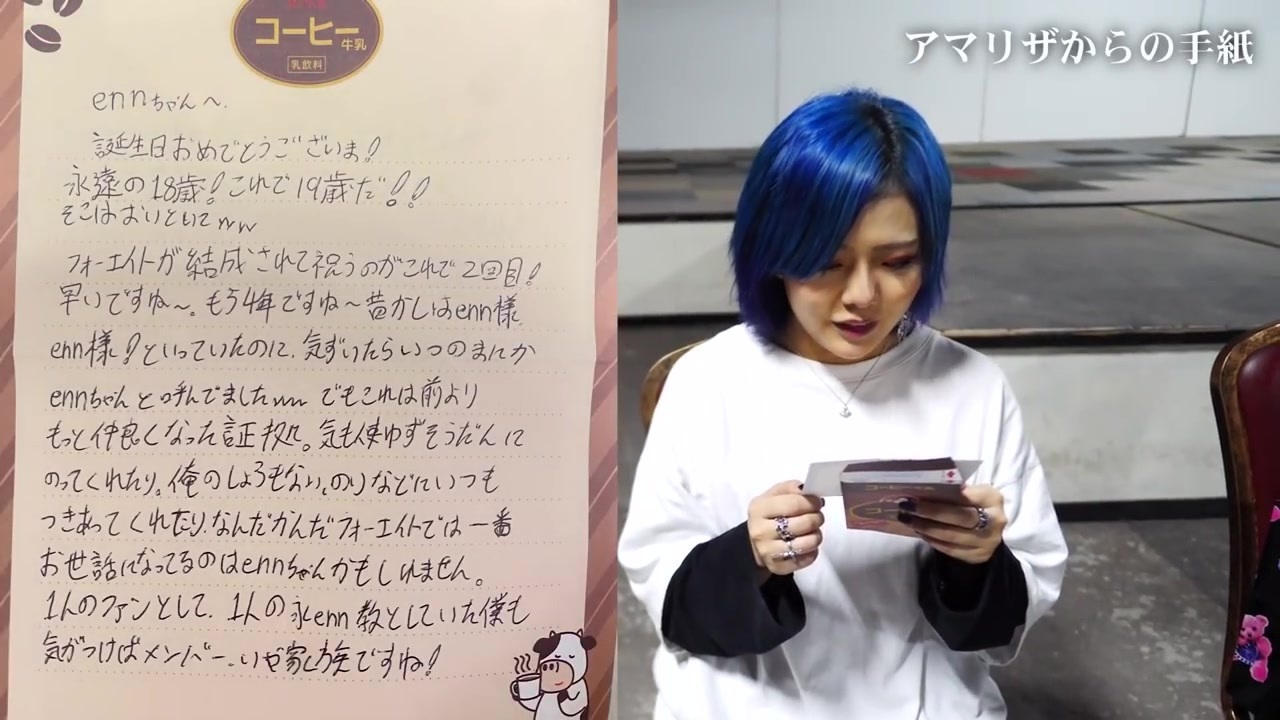 コーヒー
牛乳
乳飲料
アマリザからの手紙
ennちゃんへ.
誕生日おめでとうございま!
永遠の18歳!これで19歳だ!!
そこはおいといてww
フォーエイトが結成されて祝うのがこれで2回目!
早いですね〜。もう4年ですね〜昔かしはenn様
enn様!といっていたのに、気ずいたらいつのまにか
ennちゃんと呼んでましたww でもこれは前より
もっと仲良くなった証拠。気も使ゆずそうだんに
のってくれたり。俺のしょうもない、のりなどにいつも
つきあってくれたり、なんだかんだフォーエイトでは一番
お世話になってるのはennちゃんかもしれません。
1人のファンとして、1人の永enn教としていた僕も
気がつけばメンバー、いや家族ですね!
コーヒー